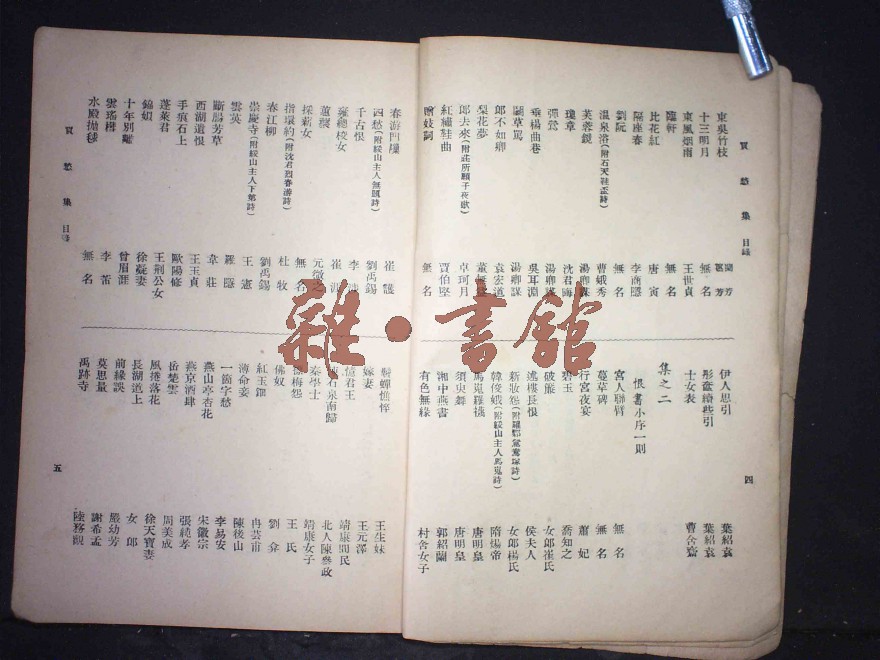 買愁集 目錄
東吳竹枝
十三明月 無名
東風烟雨 王世貞
臨軒 無名
比花紅 唐寅
隔座春 李商隱
劉阮 無名
溫泉浴(附石天鞋盃詩) 曹娥秀
芙蓉鏡 湯卿謀
瓊章 沈君晦
彈鶯 湯卿謀
垂楊曲巷 吳耳淵
鬭草罵 湯卿謀
郎不如卿 袁宏道
梨花夢
郎去來(附莊所願子夜歌) 卓珂月
紅繡鞋曲 賈伯堅
贈妓詞 無名
伊人思引 葉紹袁
彤奩續些引 葉紹袁
士女表 曹含齋
集之二
恨書小序一則
宮人聯臂 無名
蔓草碑 無名
行宮夜宴 蕭妃
碧玉 喬知之
破簾 女郎崔氏
迷樓長恨 侯夫人
新妝怨(附羅鄴鴛鴦塚詩) 女郎楊氏
韓俊娥(附綏山主人馬嵬詩) 隋煬帝
馬嵬羅襪 唐明皇
須臾舞 唐明皇
湘中燕書 郭紹蘭
有色無緣 村舍女子
四
春游門闌 崔護
四愁(附綏山主人無題詩) 劉禹錫
千古恨
雍總校女 崔
蕙襲 元微之
採薪女 無名
指環約(附沈君烈春游詩) 杜牧
春江柳 劉禹錫
崇慶寺(附綏山主人下第詩) 王憲
雲英 羅隱
斷腸芳草 韋莊
西湖遺恨 王玉貞
手痕石上 歐陽修
蓬萊君 王荊公女
錦娘 徐凝妻
十年別離 曾眉涯
雲瑤樓 李
水殿抛毬 無名
蟬憔悴 王生妹
嫁妻 王元澤
憶君王 靖康間民
石泉南歸 北人陳參政
秦學士 靖康女子
梅怨 王氏
佛奴 劉
紅玉鈿 冉芸甫
薄命妾 陳後山
一箇字愁 李易安
燕山亭杏花 宋徽宗
燕京酒肆 張純孝
岳楚雲 周美成
風捲落花 徐天寶妻
長湖道上 女郎
前緣誤 嚴幼芳
莫思量 謝希孟
禹跡寺 陸務觀
買愁集 目錄
五
雜·書館